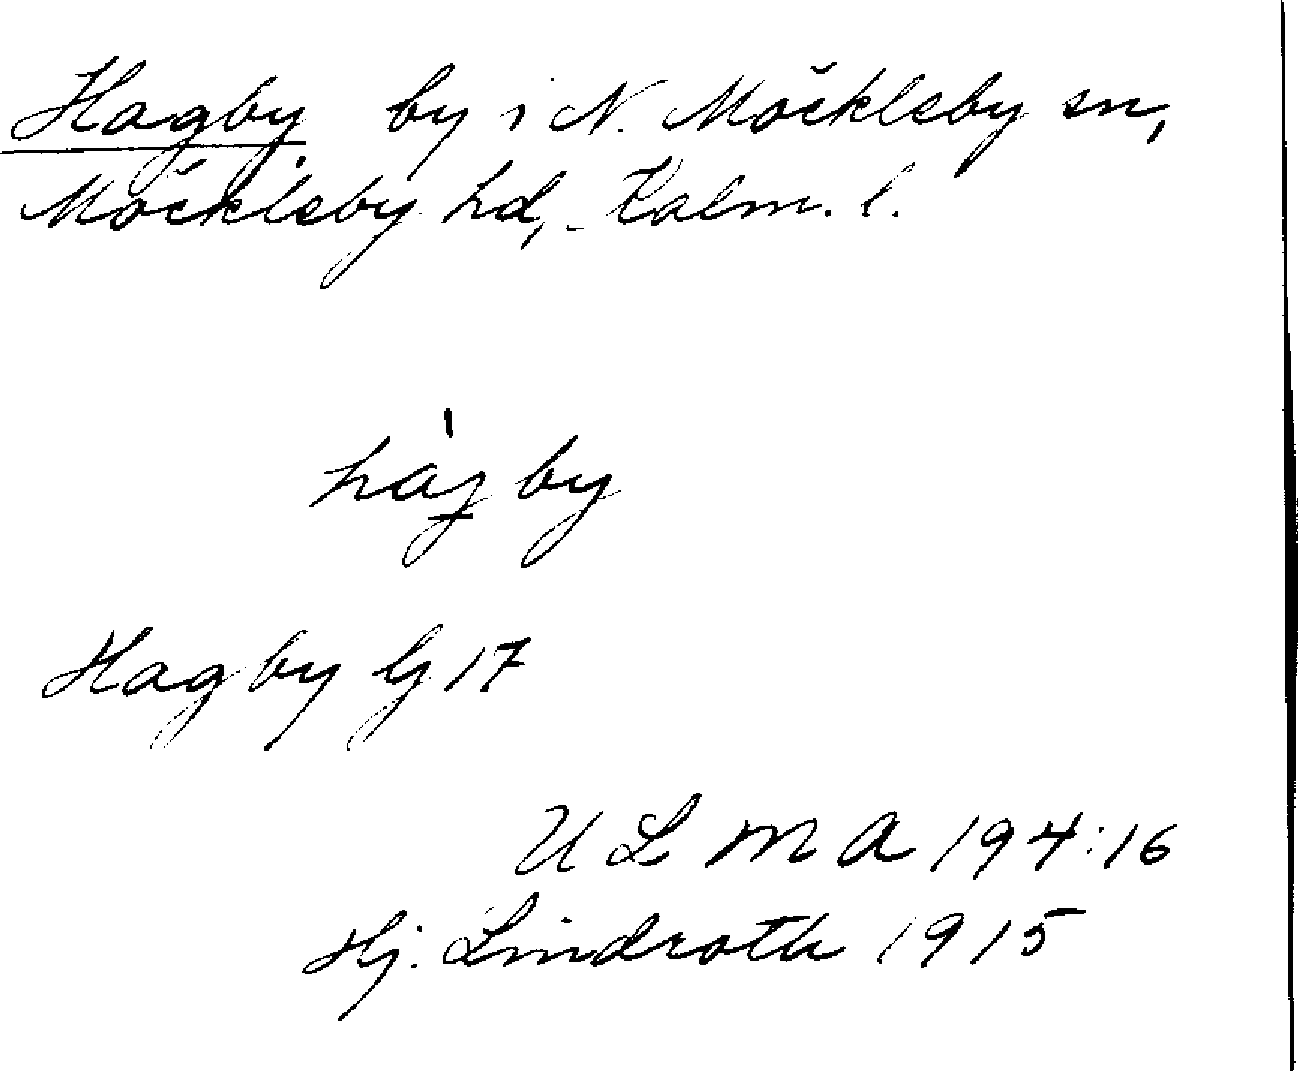 Hagby by i N. Möckleby sn,
Möckleby hd, Kalm. l.
hágby
Hagby G 17
U L M A 194:16
Hj. Lindroth 1915